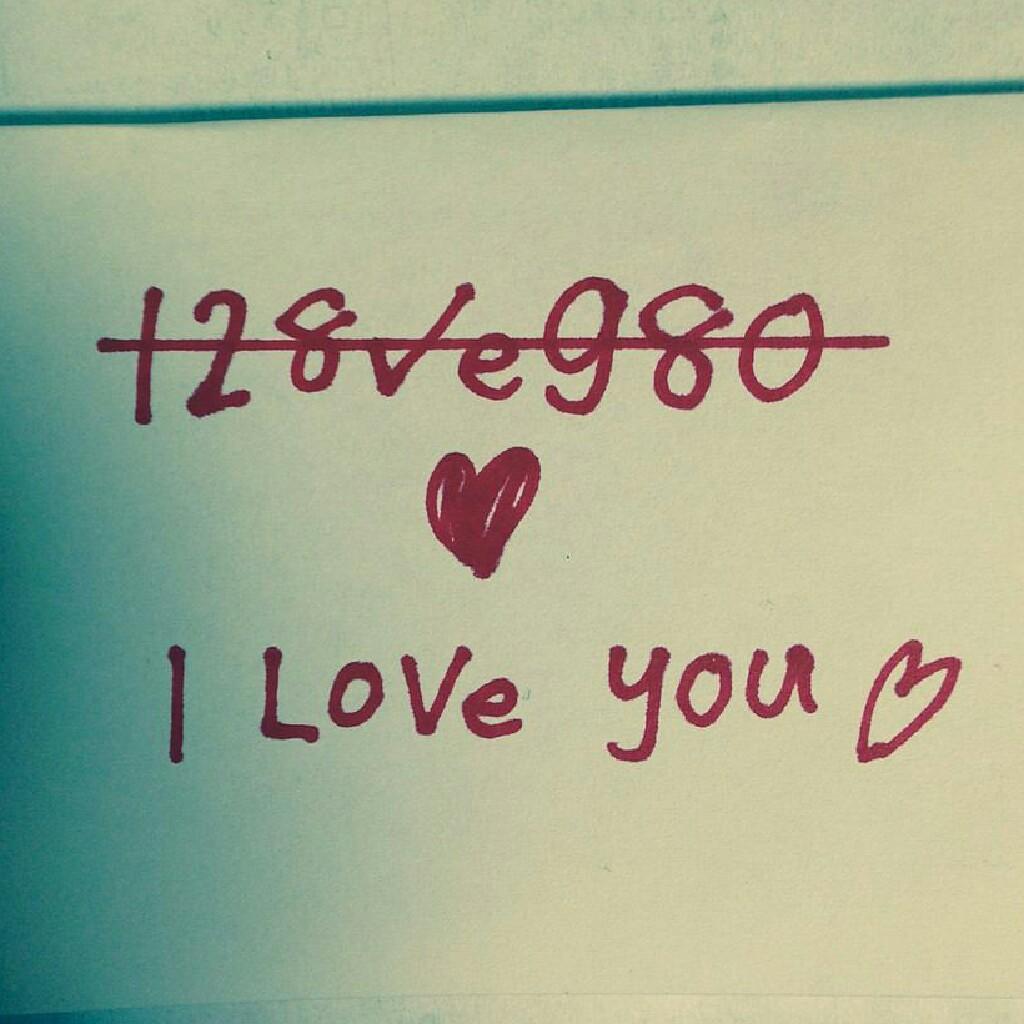 128ve980
I Love you